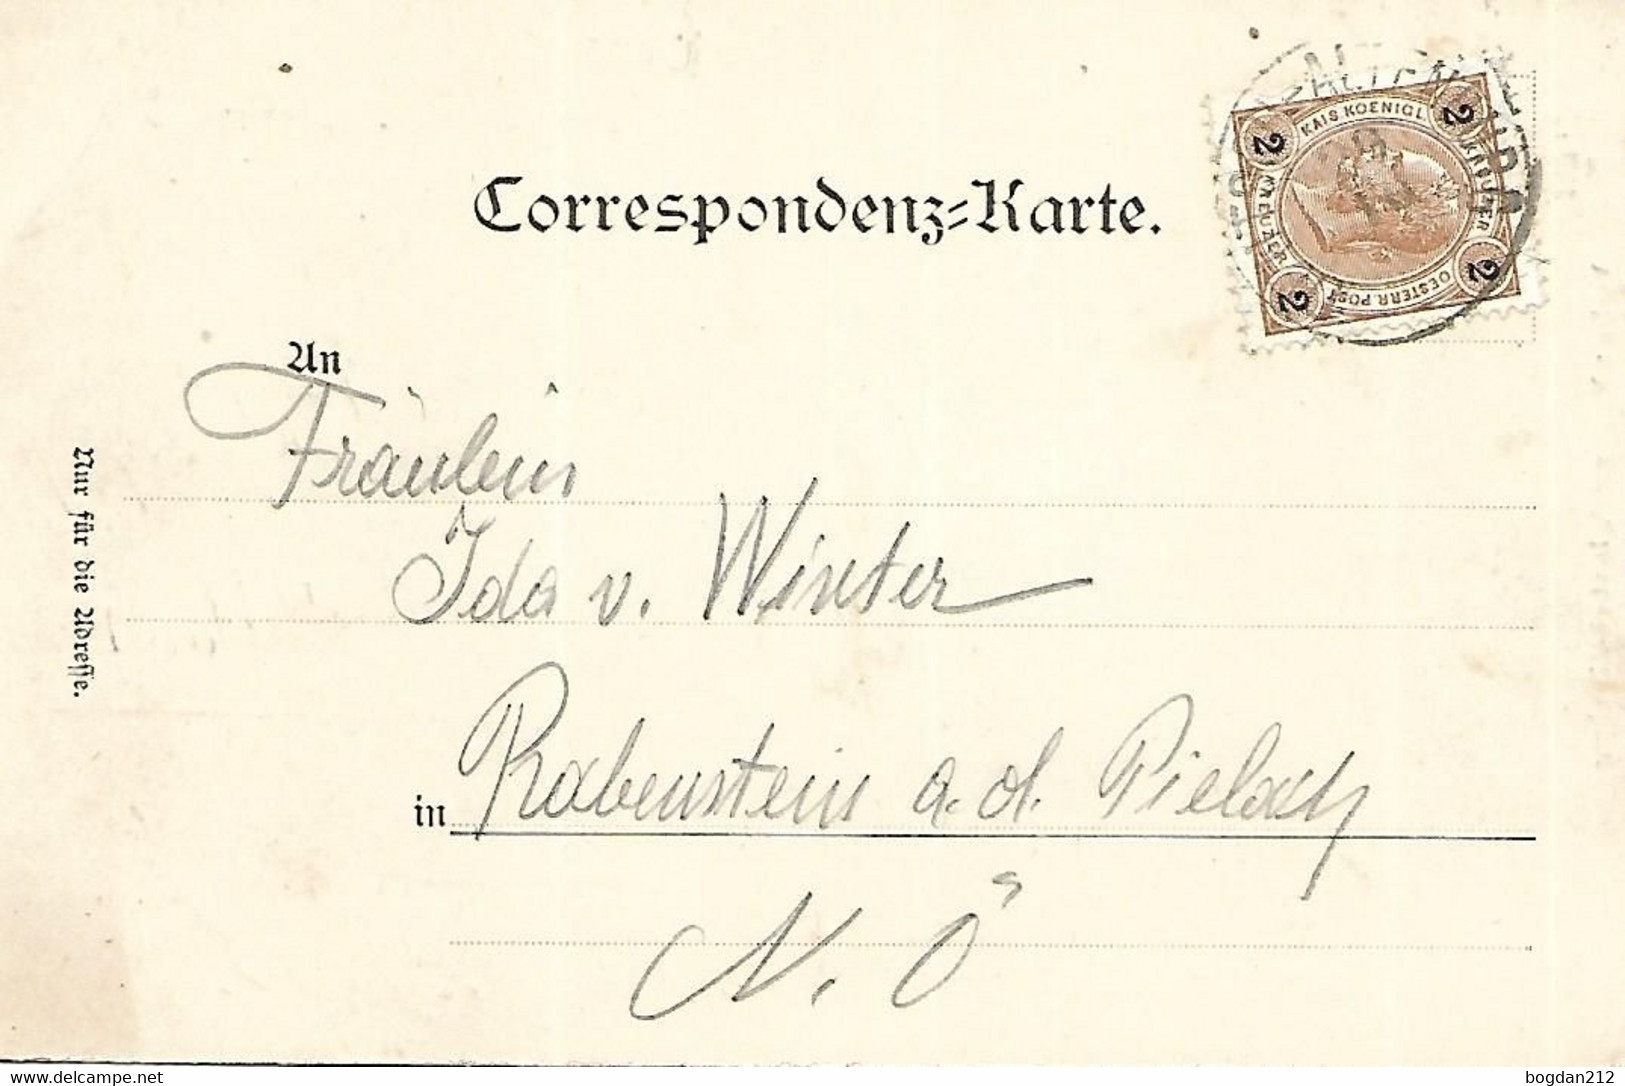 Correspondenz-Karte.
KAIS KOENIGL.
OESTERR. POST
KREUZER
KREUZER
2
2
2
2
An
Fräulein
Ida v. Winter
in Rabenstein a. d. Pielach
N. Ö
Nur für die Adresse.
www.delcampe.net
bogdan212